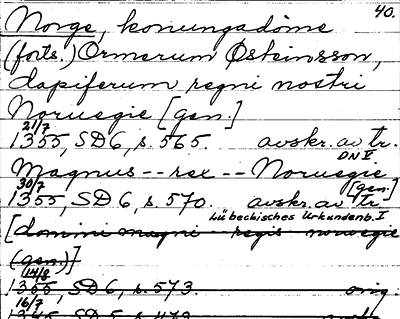 40.
Norge, konungadöme
(forts.) Ormerum Østeinsson,
dapiferum regni nostri
Noruegie [gen.]
21/7
1355, SD6, s. 565. avskr. av tr.
DN I
Magnus -- rex -- Noruegie
30/7 [gen.]
1355, SD6, s. 570. avskr. av tr
Lübeckisches Urkundenb. I
[domini magni regis norwegie
(gen.)]
14/8
1355, SD6, s. 573. orig.
16/7
SD 5, s.